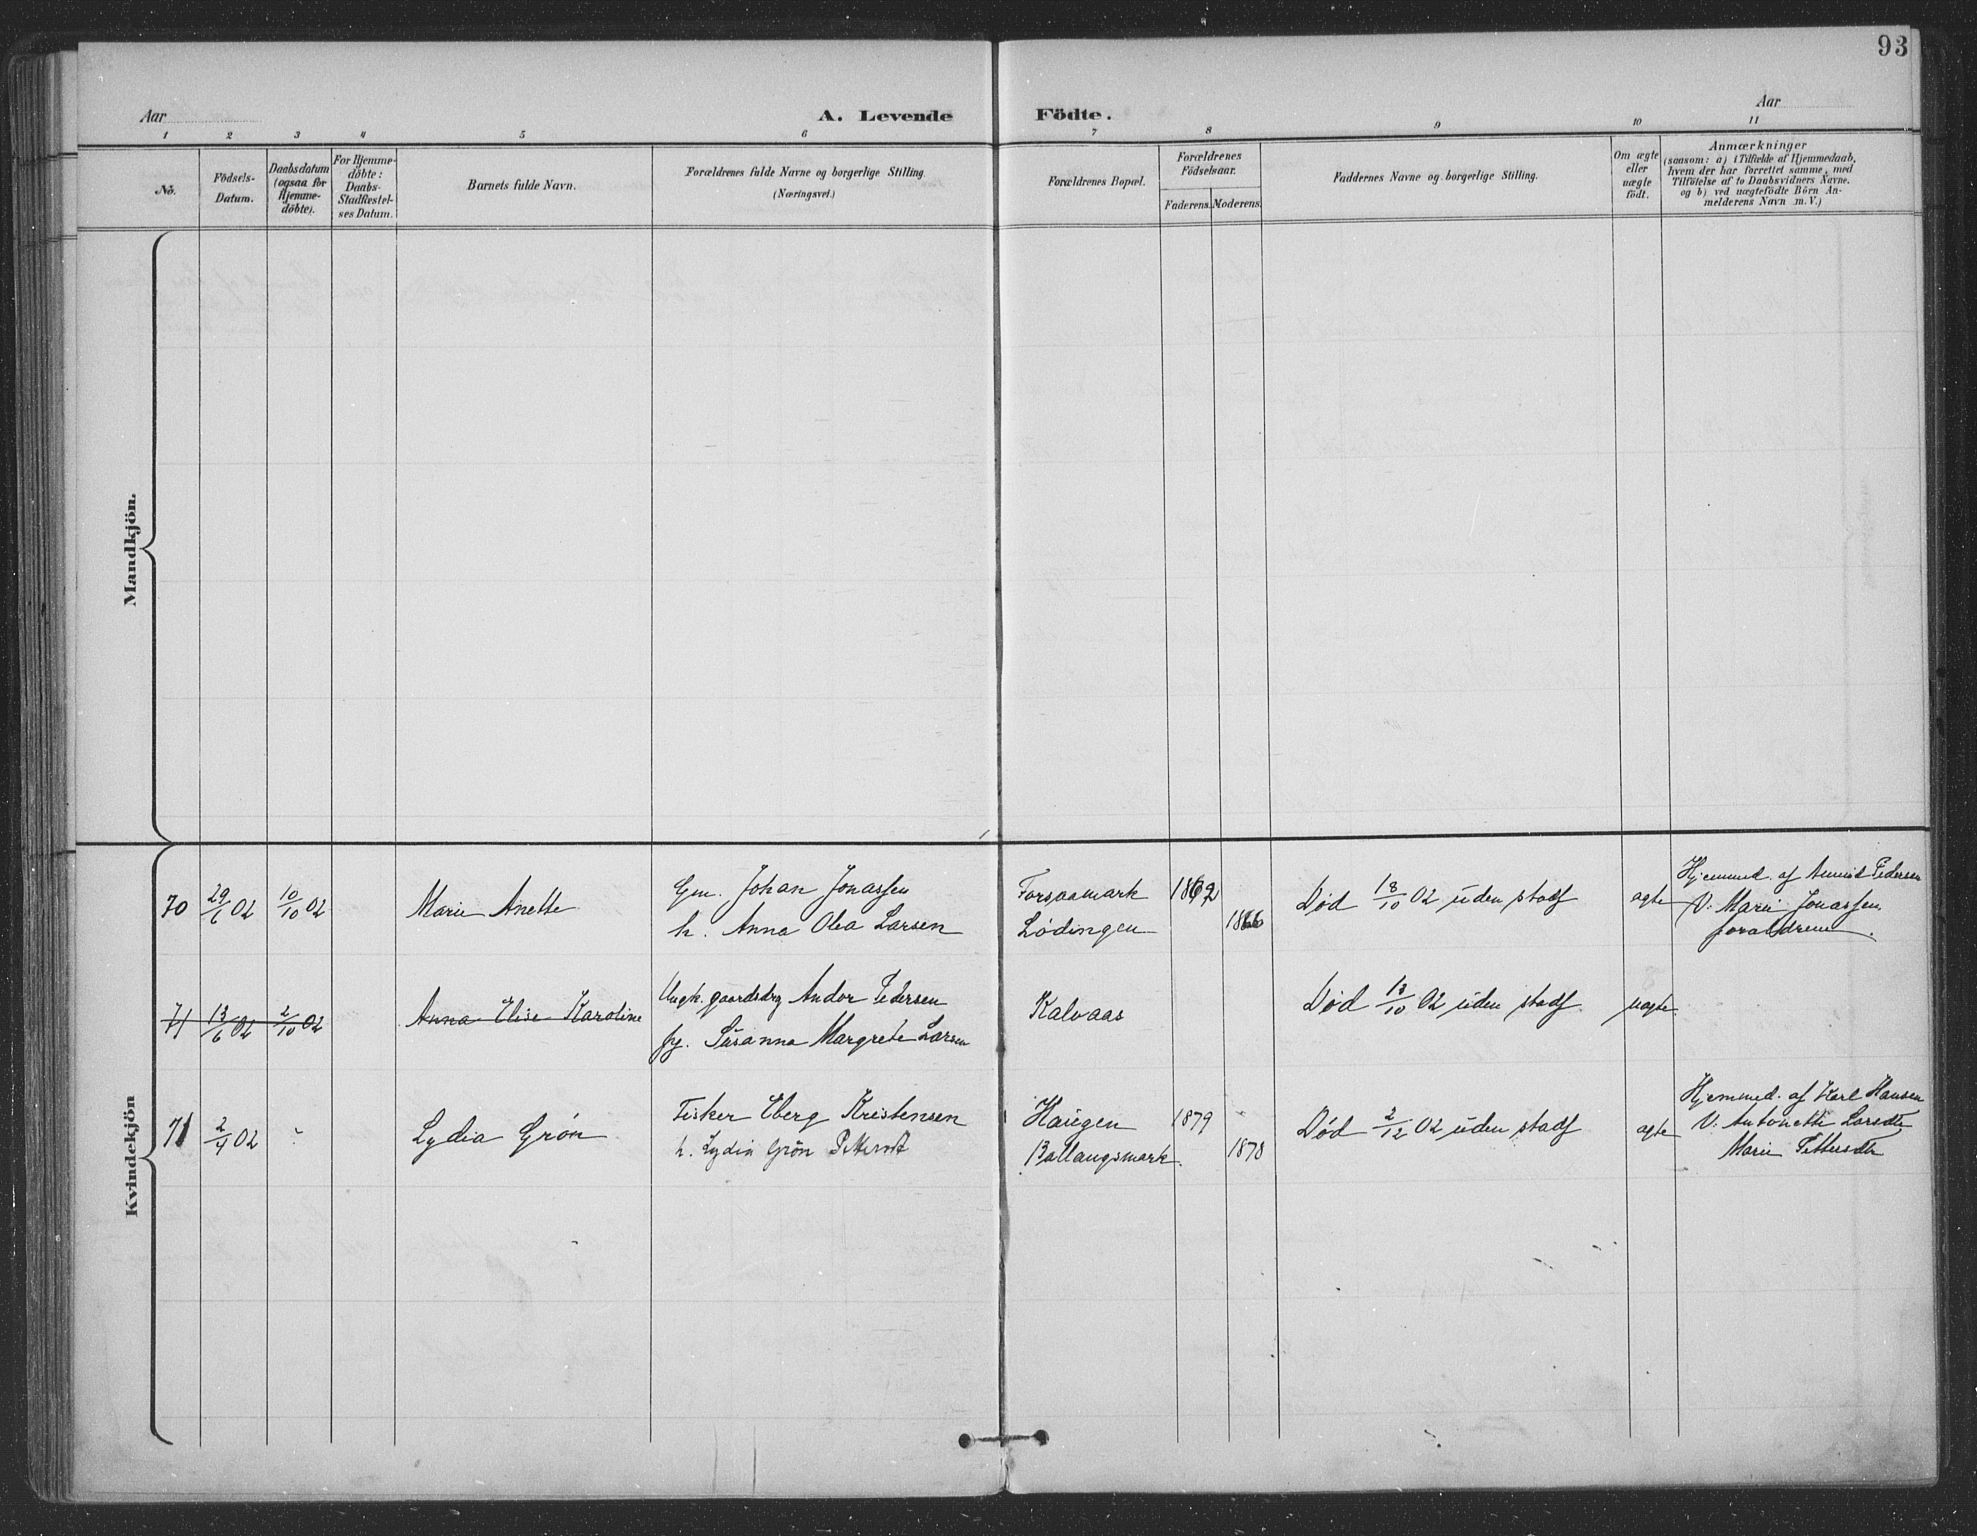 93
Aar
A. Levende Födte.
Aar
1 2 3 4 5 6 7 8 9 10 11
No.
Födsels-Datum.
Daabsdatum (ogsaa for Hjemmedöbte).
For Hjemmedöbte: Daabs-Stadfæstelses Datum.
Barnets fulde Navn.
Forældrenes fulde Navne og borgerlige Stilling.
(Næringsvei.)
Forældrenes Bopæl.
Forældrenes Födselsaar.
Faderens. Moderens.
Faddernes Navne og borgerlige Stilling.
Om ægte eller uægte födt.
Anmærkninger
(saasom: a) i Tilfælde af Hjemmedaab,
hvem der har forrettet samme, med
Tilföielse af to Daabsvidners Navne.
og b) ved uægtefödte Börn An-
melderens Navn m. V.)
Mandkjön.
Kvindekjön
70 29/6 02 10/10 02 Marie Anette
Gm. Johan Jonassen
h. Anna Olea Larsen
Forsaamark
Lødingen
1862
1866
Død 18/10 02 uden stadf
ægte
Hjemmed. af Pedersen
V. Marie Jonassen
forældrene.
71 13/6 02 2/10 02 Anna Elise Karoline
Ungk. gaardsdrg Andor Pedersen
pg. Susanna Margrete Larsen
Kalvaas
Død 13/10 02 uden stadf
uægte
71 2/4 02 Lydia Grøn
Fisker Eberg Kristensen
h. Lydia Grön
Haugen
Ballangsmark.
1879
1878
Død 2/12 02 uden stadf
ægte
Hjemmed. af Karl Hansen
V. Antonette Larsdtr
Marie Pettersdtr